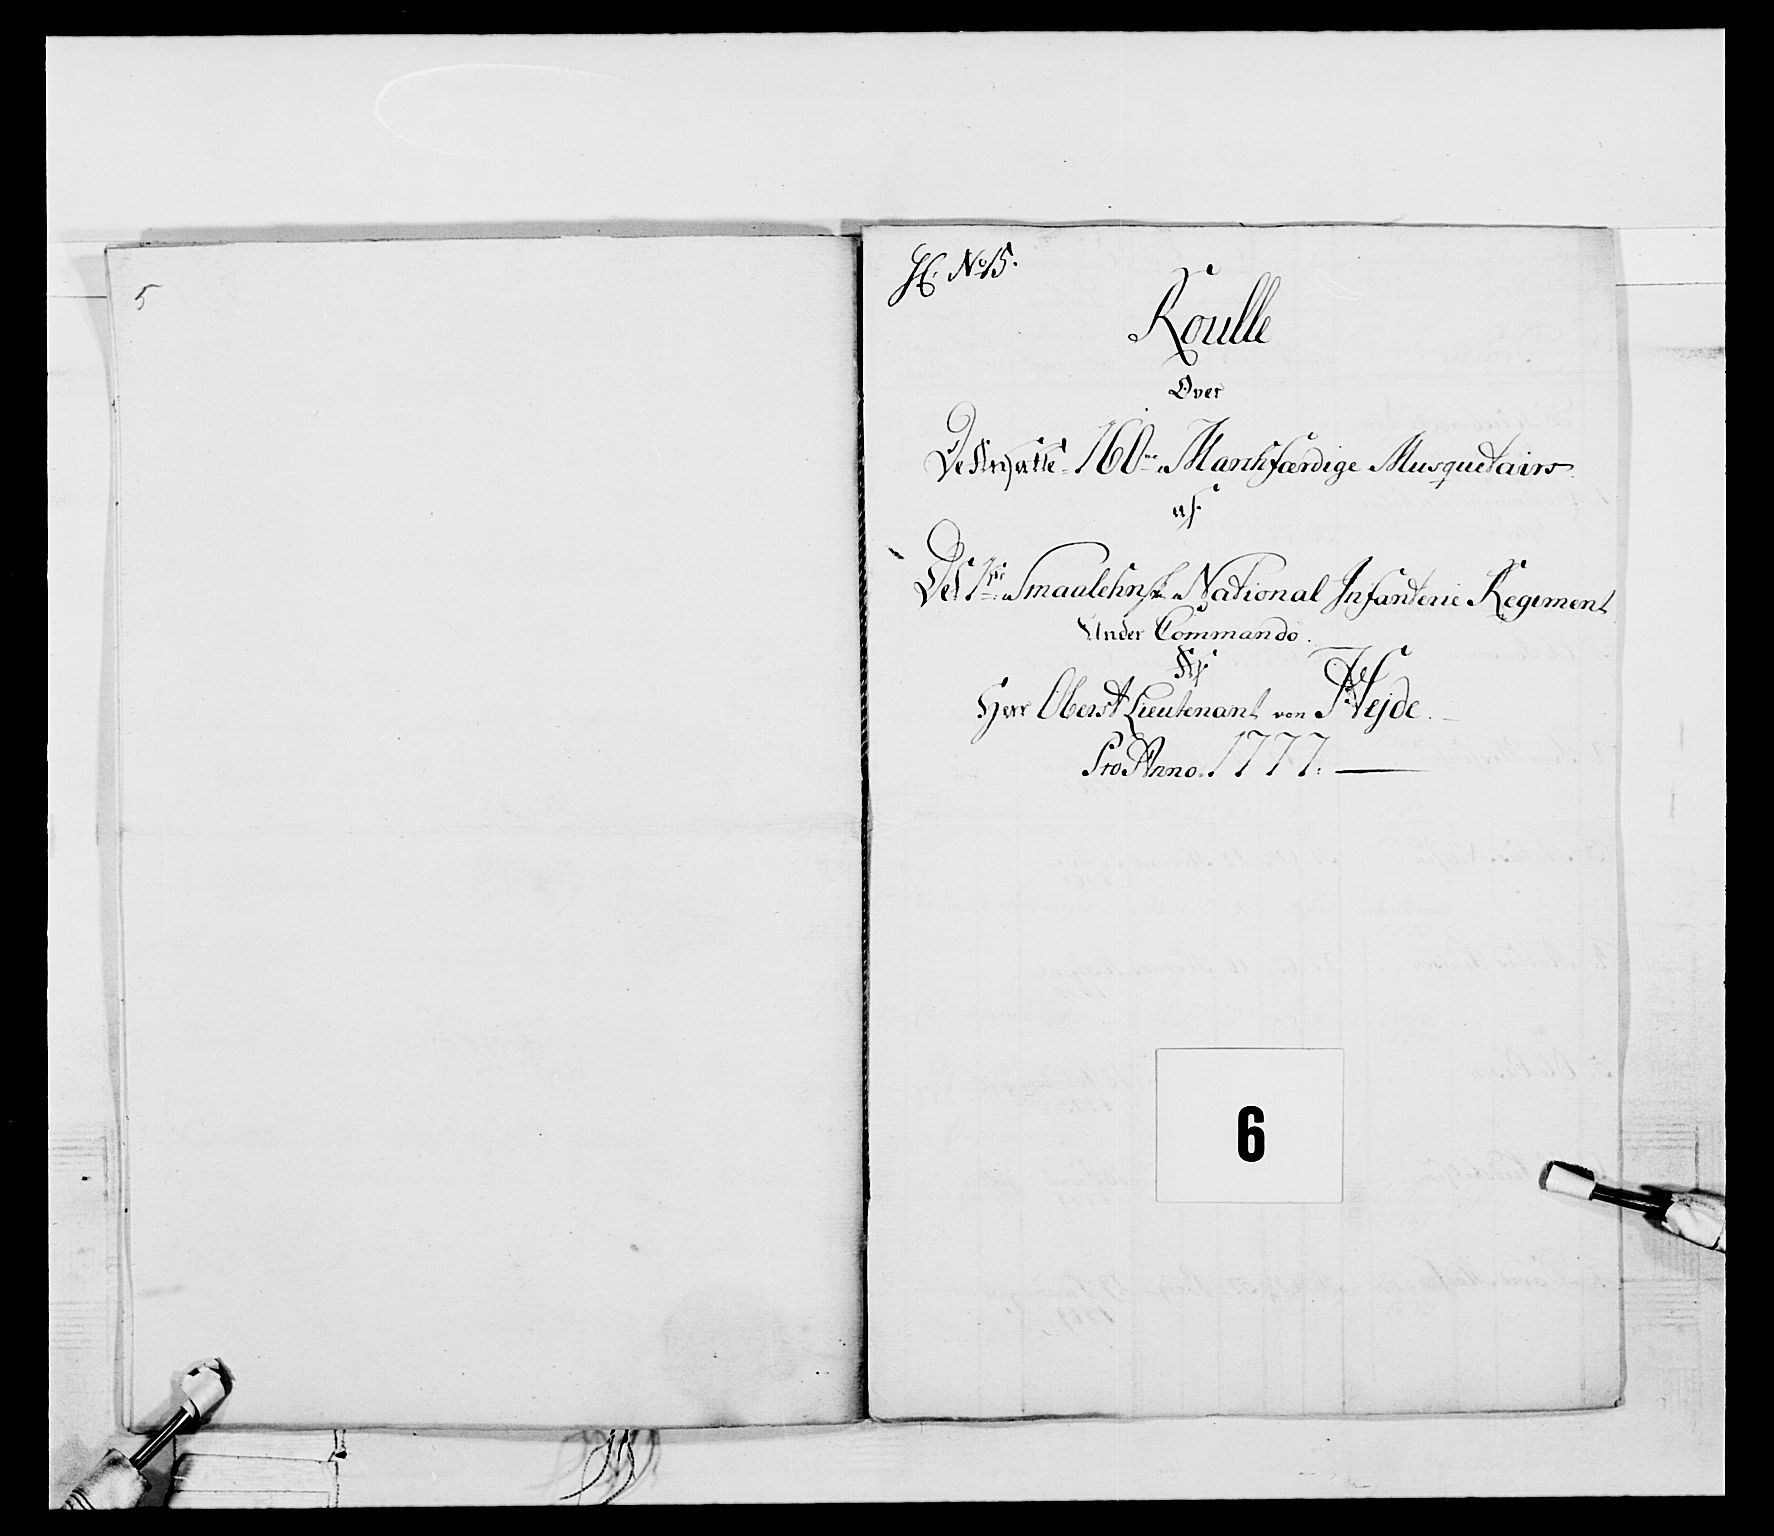 5
No 15.
Roulle
Over
160 Marchfærdige Musquetairs
af
Det 1ste Smaalehnske National Infanterie Regiment
Under Commando
Af
Herr Oberst Lieutenant von Hejde.
Pro Anno 1777.
6